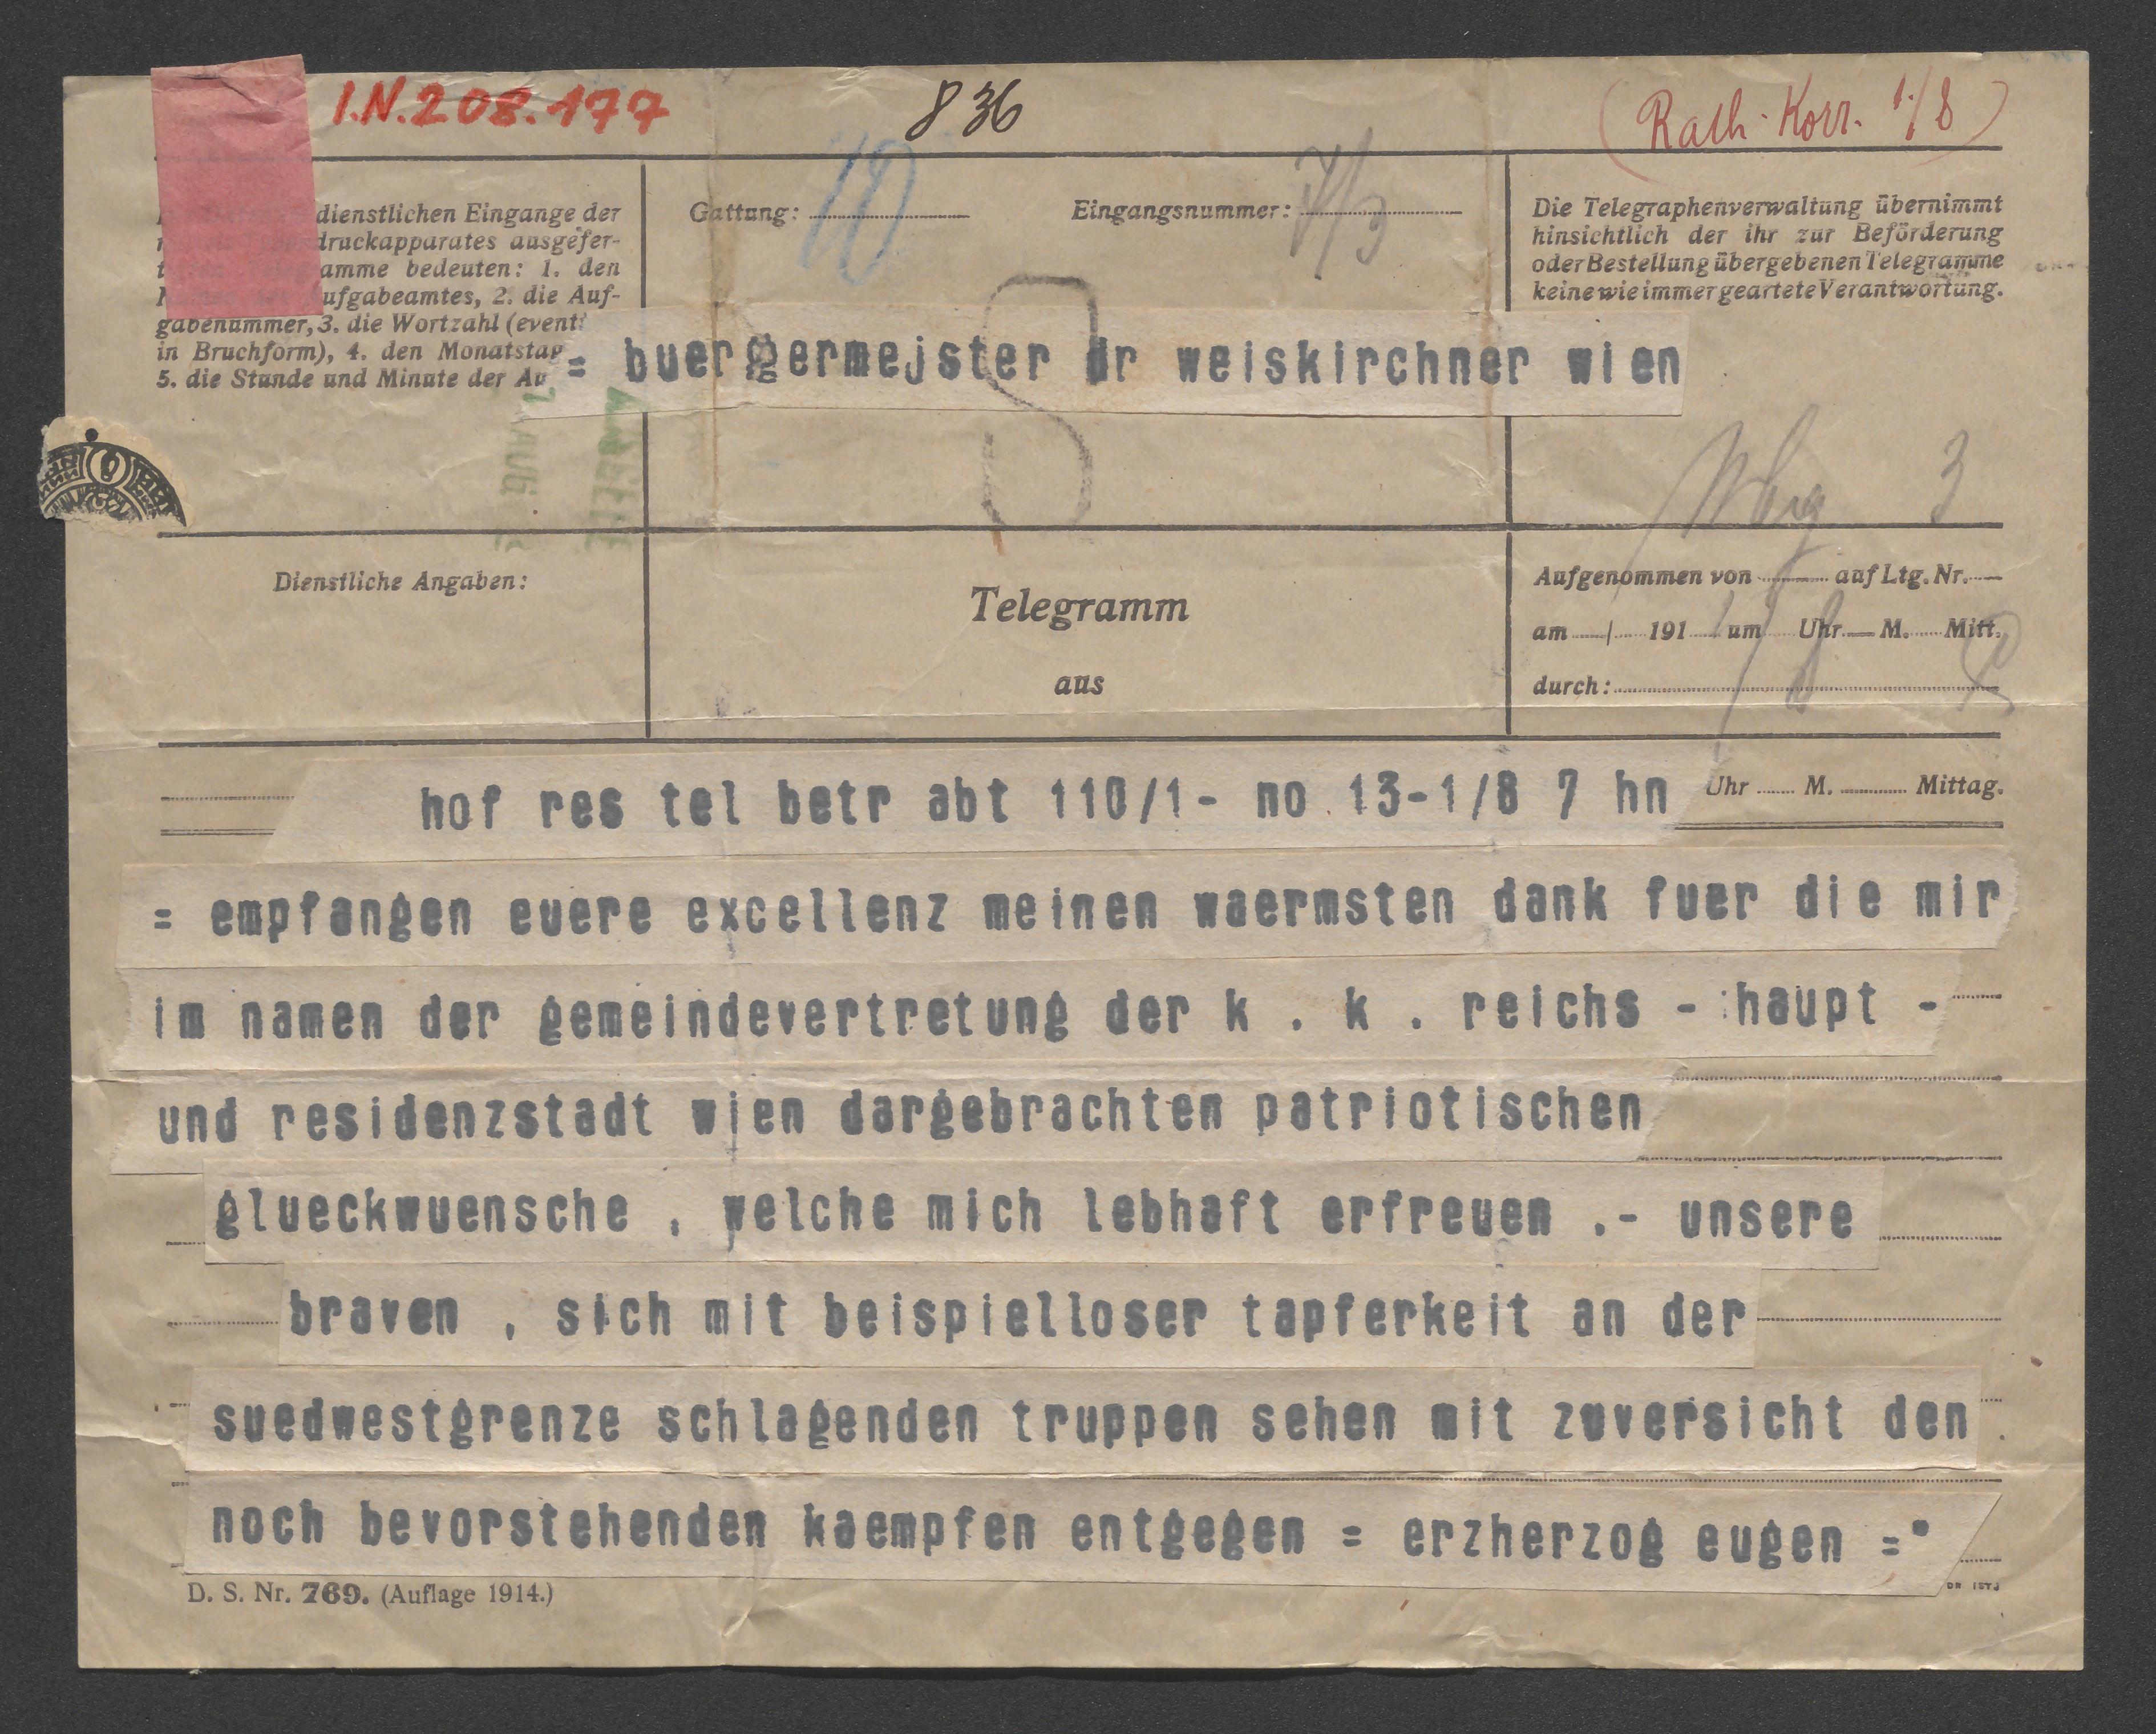 I.N.208.177
836
(Rath. Korr. 1./8)
dienstlichen Eingange der
druckapparates ausgefer-
amme bedeuten: 1. den
ufgabeamtes, 2. die Auf-
gabenummer, 3. die Wortzahl (event.
in Bruchform), 4. den Monatstag
5. die Stunde und Minute der Au
Gattung:
Eingangsnummer:
Die Telegraphenverwaltung übernimmt
hinsichtlich der ihr zur Beförderung
oder Bestellung übergebenen Telegramme
keine wie immer geartete Verantwortung.
= buergermejster dr weiskirchner wien
3
Dienstliche Angaben:
Telegramm
aus
Aufgenommen von auf Ltg. Nr.
am / 191 um Uhr M. Mitt.
durch:
hof res tel betr abt 110/1- no 13-1/8 7 hn
Uhr M. Mittag.
= empfangen euere excellenz meinen waermsten dank fuer die mir
im namen der gemeindevertretung der k . k . reichs - haupt -
und residenzstadt wjen dargebrachten patriotischen
glueckwuensche , welche mich lebhaft erfreuen .- unsere
braven , sich mit beispielloser tapferkeit an der
suedwestgrenze schlagenden truppen sehen mit zuversicht den
noch bevorstehenden kaempfen entgegen = erzherzog eugen =
D. S. Nr. 769. (Auflage 1914.)